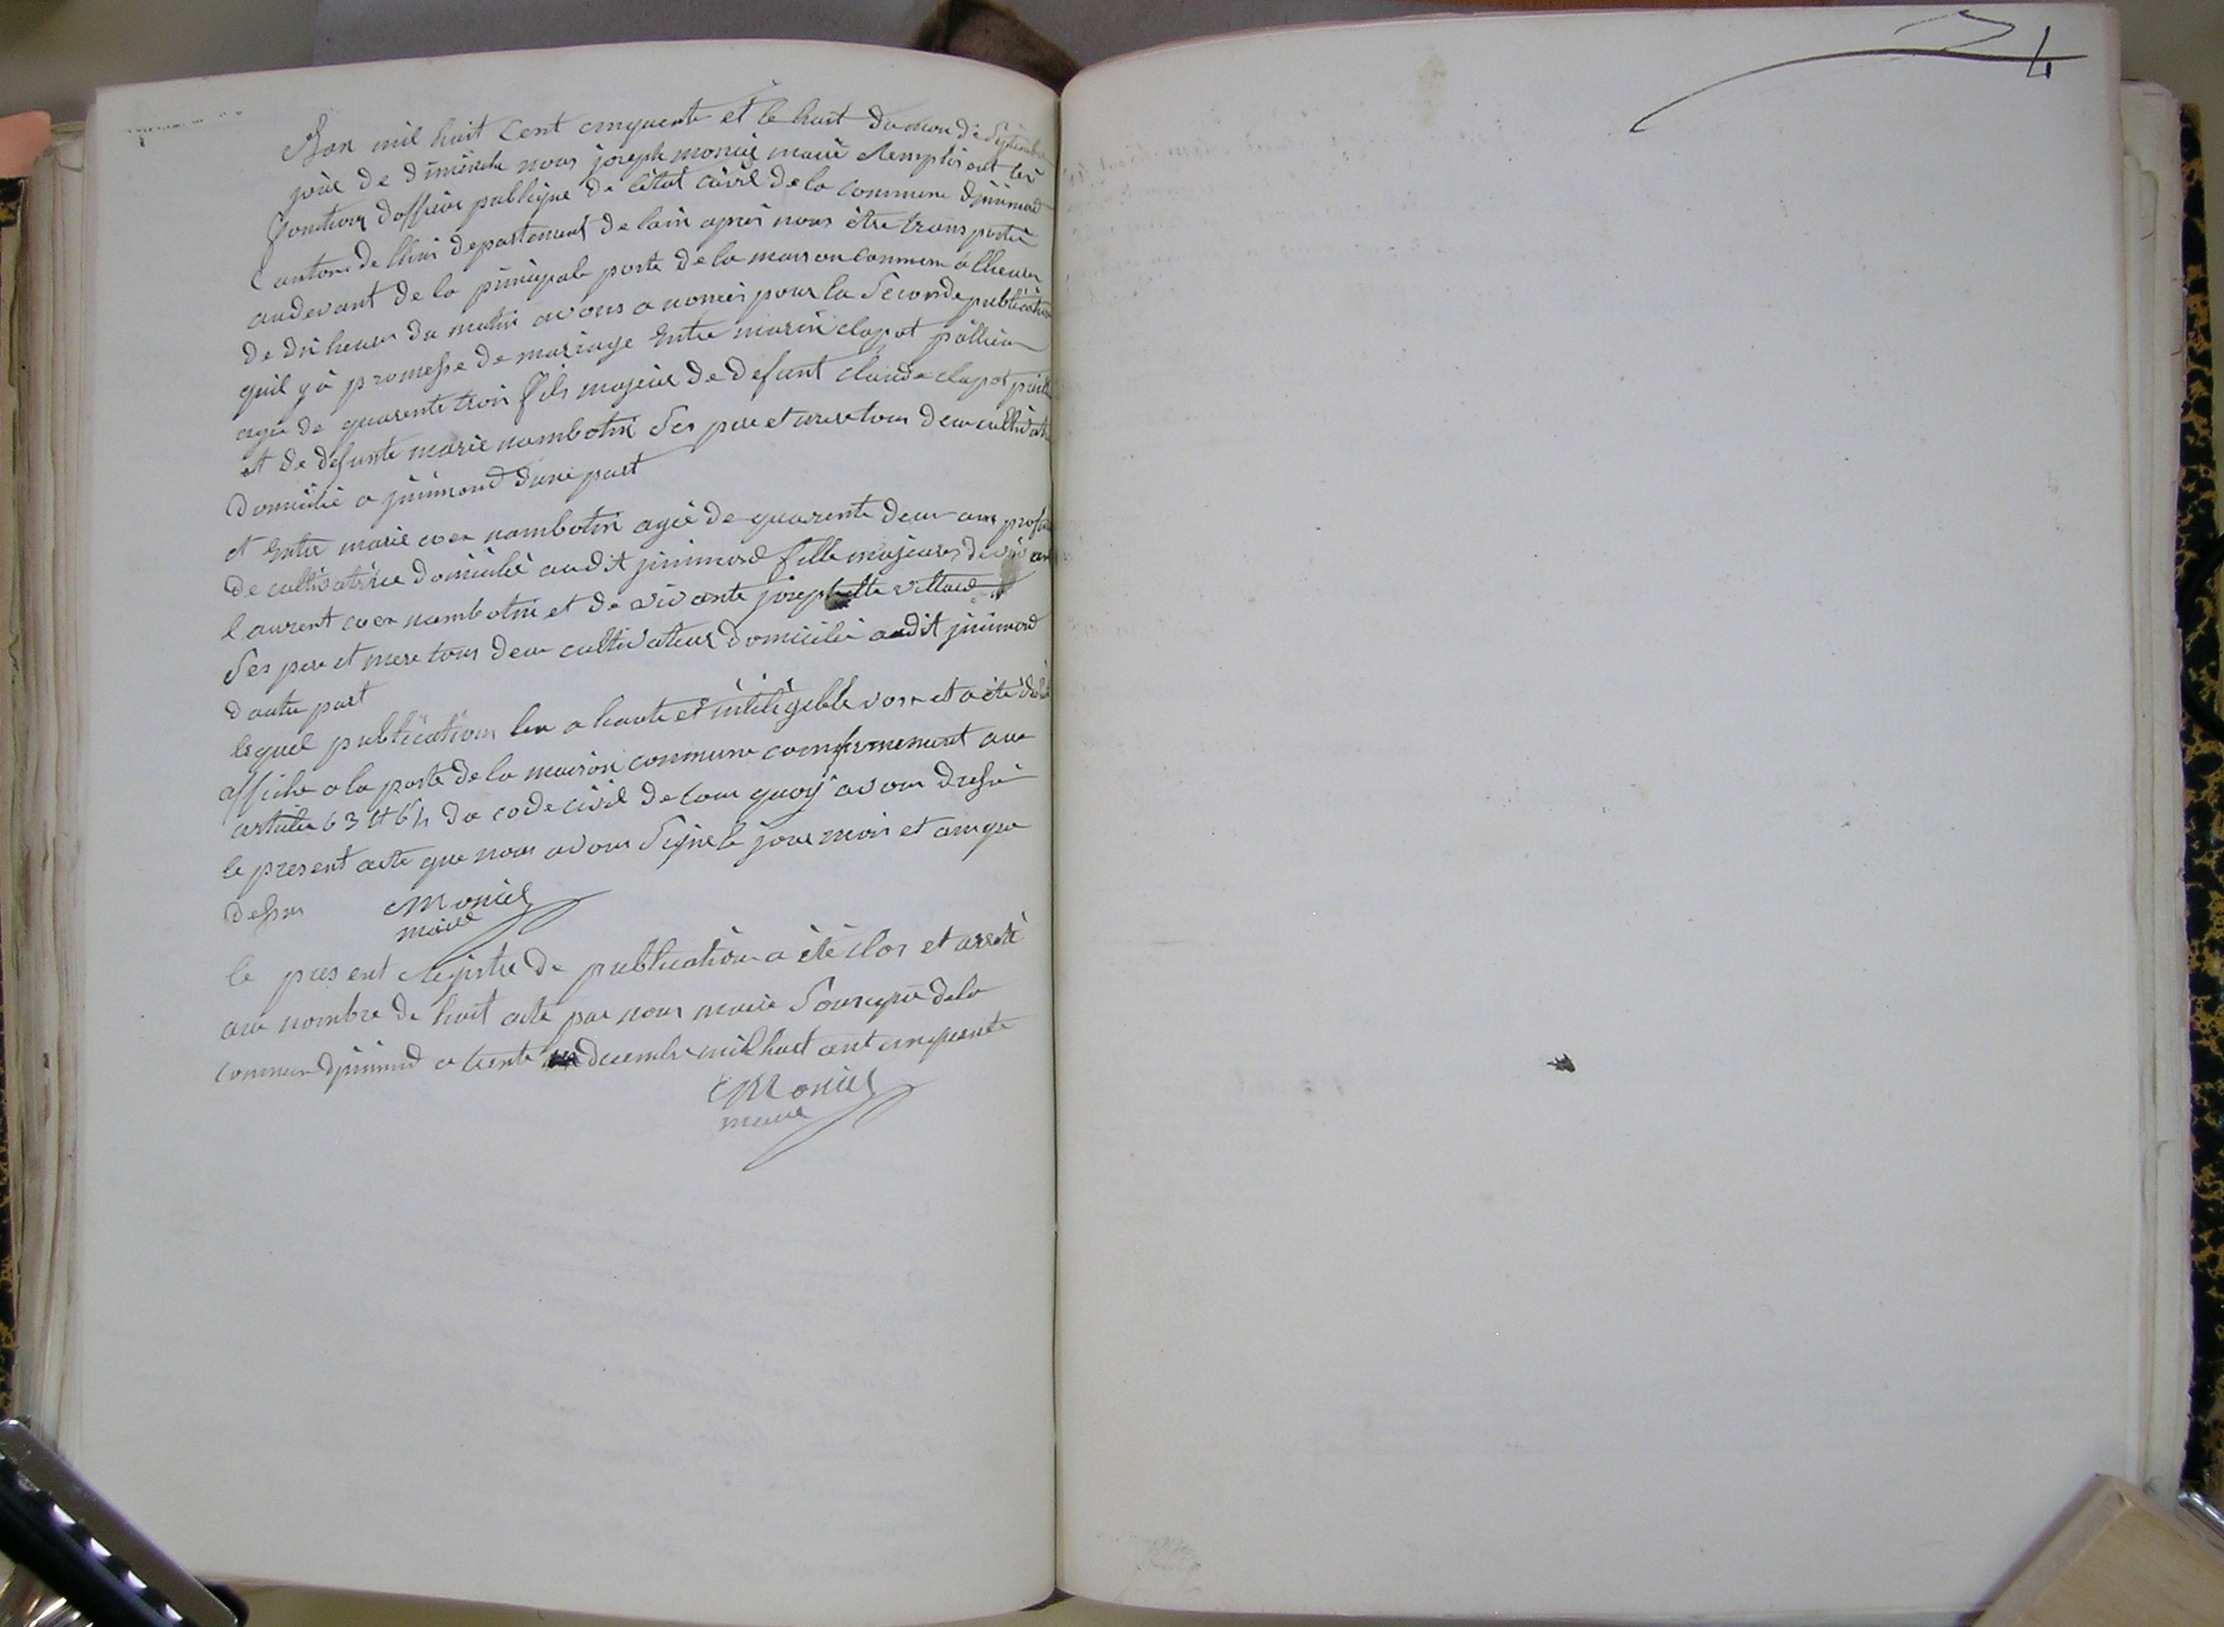 Lan mil huit Cent cinquante et le huit du mois de Septembre
jour de dimenche nous joseph moniez maire Remplisent les
fonctions d'officier publique de létat civil de la commune djinimond
Canton de lhuis departement de lain apres nous être transporté
audevant de la principale porte de la maison commune a lheure
de dix heures du matin avons anoncés pour la Seconde publication
quil y à promesse de mariage Entre marin clapot pallien
agé de quarente trois fils majeur de defunt claude clapot
et de defunte marie nambotin Ses pere et mere tous deux
domicilié a jinimond dune part
et Entre marie coca nambotin agée de quarente deux ans
de cultivatrice domicilié audit jinimond fille majeure de
laurent coca nambotin et de vivante josephette villard
Ses pere et mere tous deux cultivateur domicilié audit jinimond
dautre part
lequel publication lue a haute et intélègible voix et a été
affiche a la porte de la maison commune comformement aux
articles 63 et 64 du code civil de tout quoÿ avons dressé
le present acte que nous avons Signe le jour mois et an que
dessus Moniez
maire
le present Registre de publication a été clos et arreté
au nombre de huit acte par nous maire Sousigné de la
commune djinimond a trente decembre mil huit cent cinquente
Moniez
maire
24